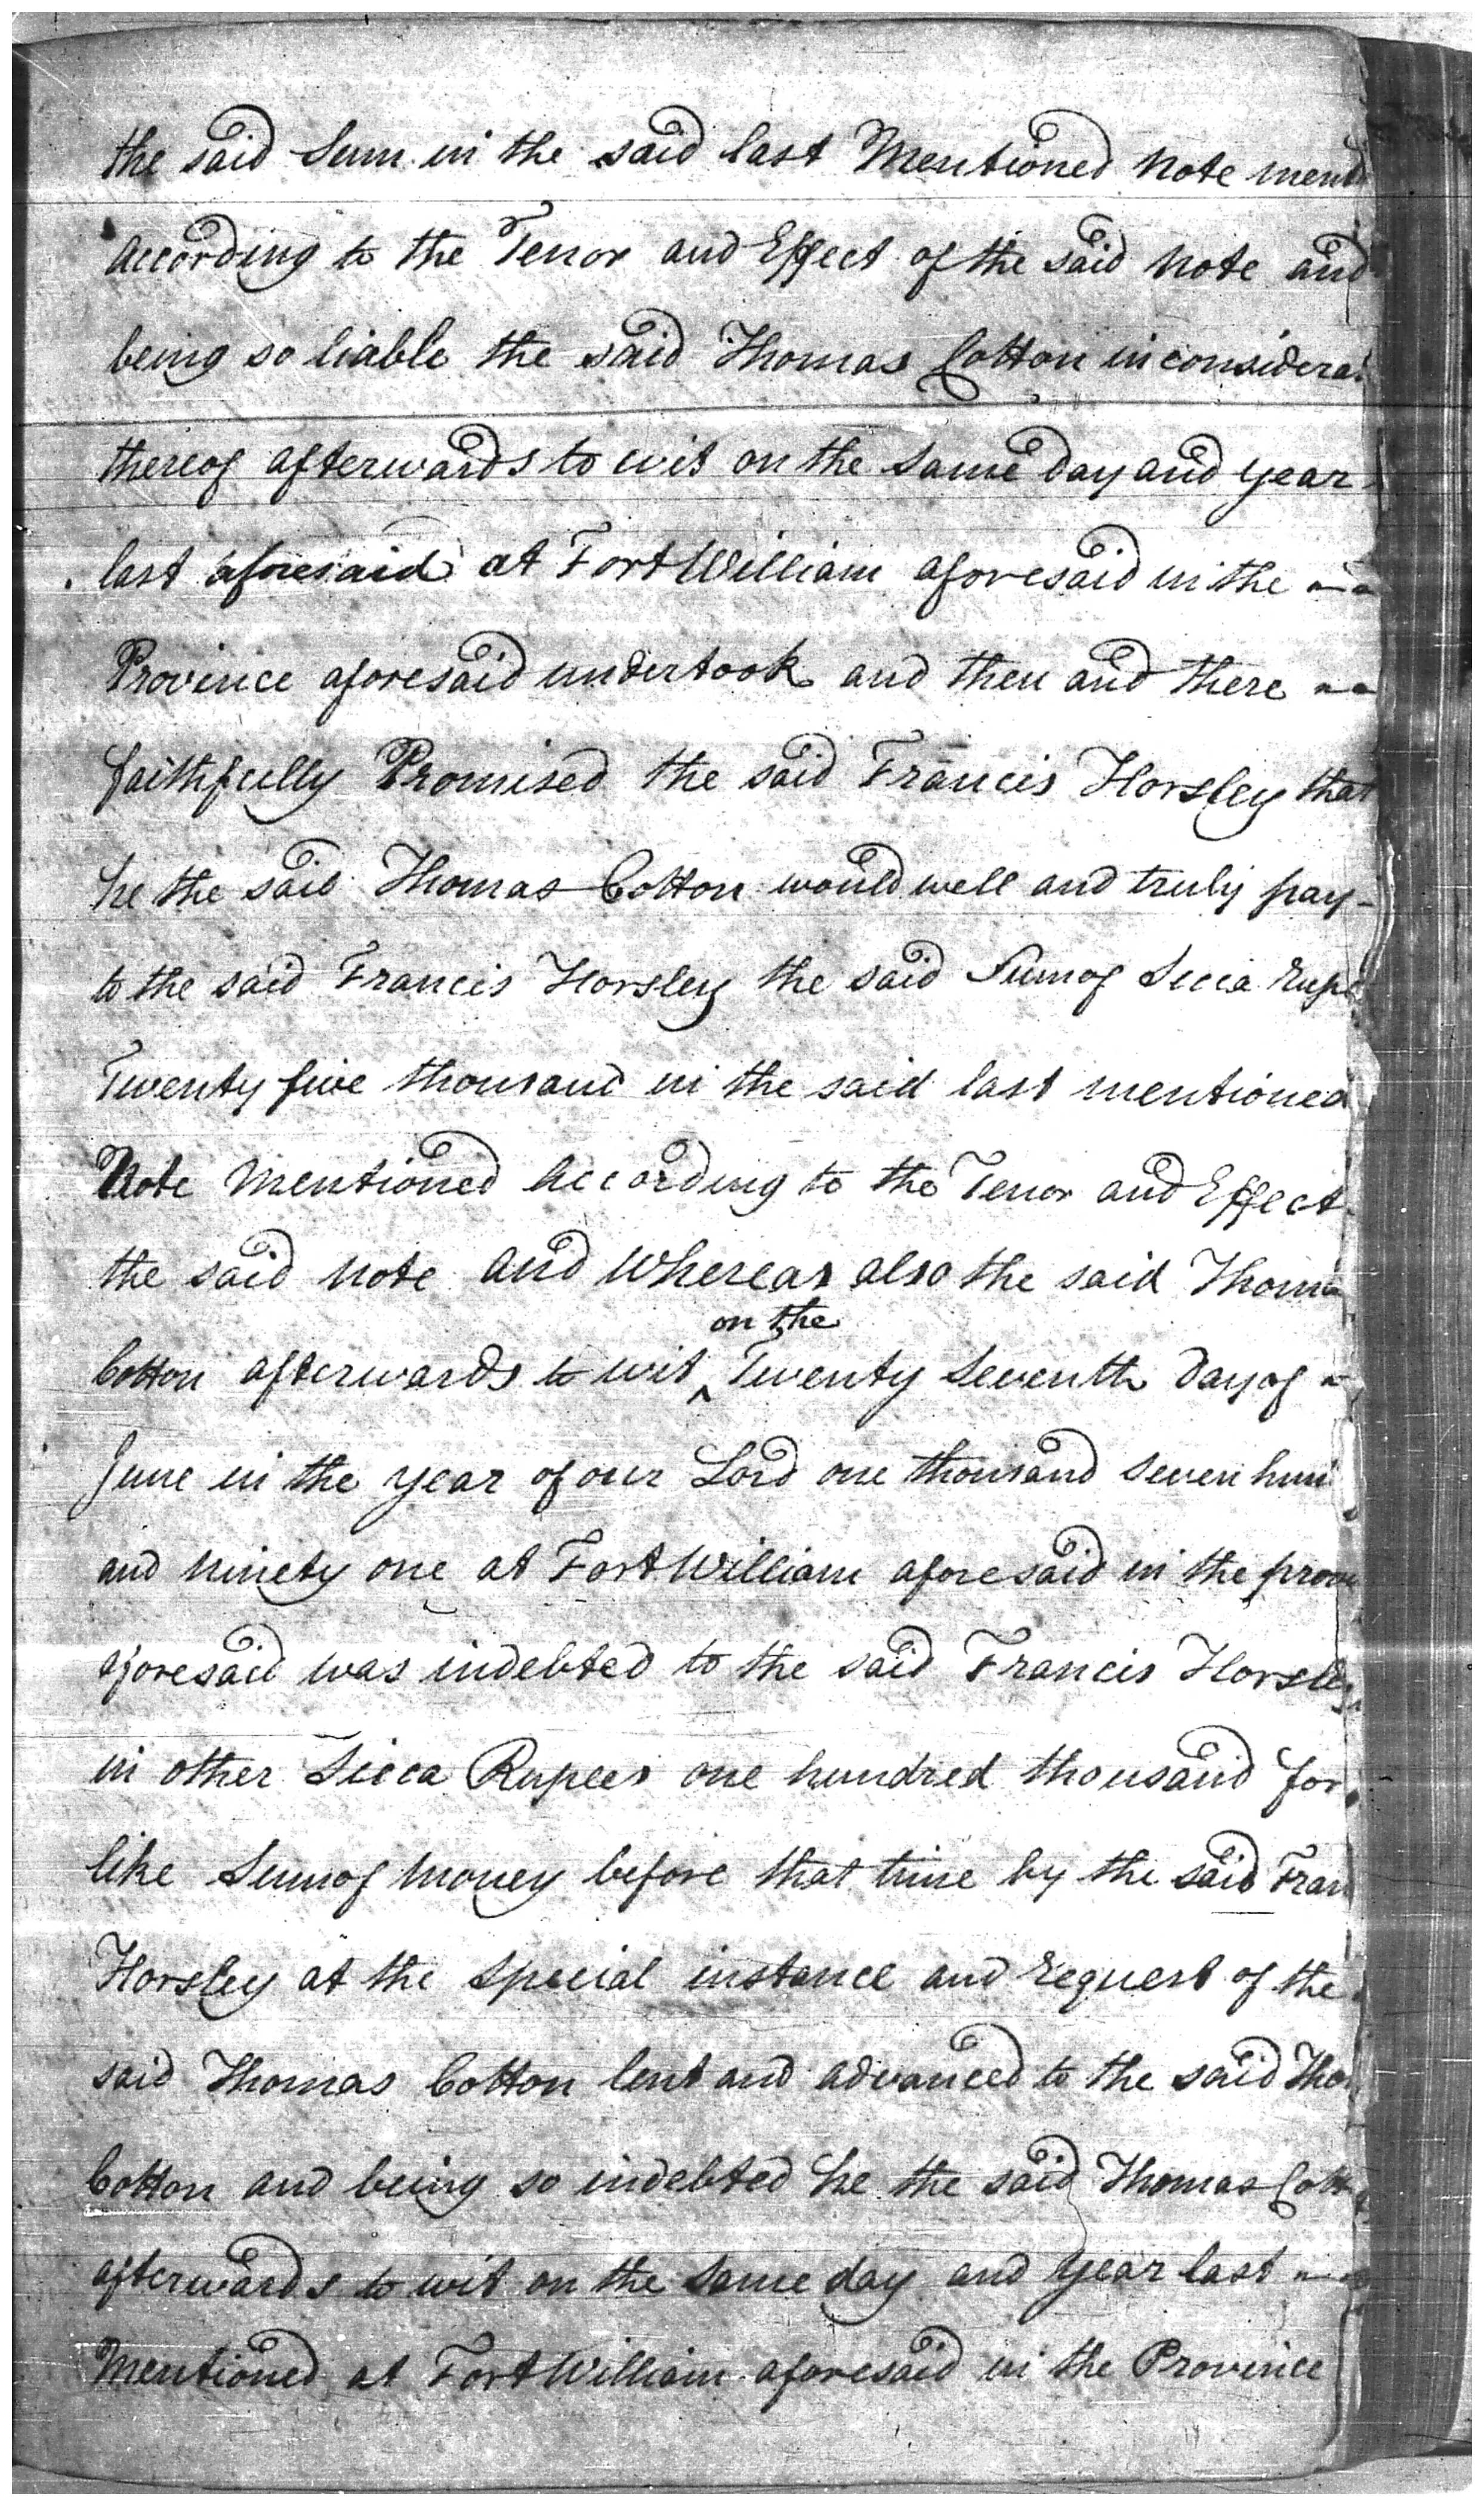 the said Sum in the said last Mentioned Note ment
According to the Tenor and Effect of the said Note and
being so liable the said Thomas Cotton in considera
thereof afterwards to wit on the same Day and year
last aforesaid at Fort William aforesaid in the
Province aforesaid undertook and then and there
faithfully Promised the said Francis Horsley that
he the said Thomas Cotton would well and truly pay
to the said Francis Horsley the said Sum of Sicca Rupe
Twenty five thousand in the said last mentioned
Note Mentioned According to the Tenor and Effect
the said Note and Whereas also the said Thoma
on the
Cotton afterwards to wit ^ Twenty Seventh Day of
June in the year of our Lord one thousand seven hun
and Ninety one at Fort William aforesaid in the prov
aforesaid was indebted to the said Francis Horsley
in other Sicca Rupees one hundred thousand for
like Sum of Money before that time by the said Fran
Horsley at the special instance and request of the
said Thomas Cotton lent and advanced to the said Tho
Cotton and being so indebted he the said Thomas Cott
afterwards to wit on the same day and year last
Mentioned at Fort William aforesaid in the Province